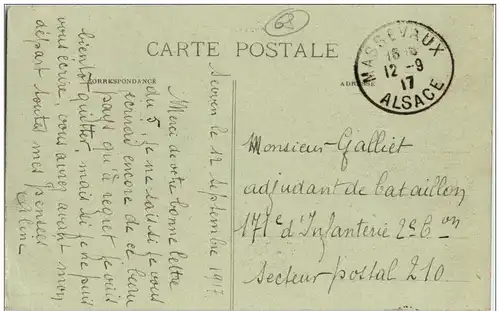 68
CARTE POSTALE
CORRESPONDANCE
ADRESSE
MASSEVAUX
16
12-9
17
ALSACE
le 12 Septembre 1917
Merci de votre bonne lettre
du 5, je ne sais si je vous
écrirai encore de ce beau
pays qu'à regret je vais
bientôt quitter, mais si je ne puis
vous écrire, vous aurez avant mon
départ toutes mes pensées
Monsieur Galliet
adjudant de bataillon
171e d'Infanterie 2e Bon
Secteur postal 210